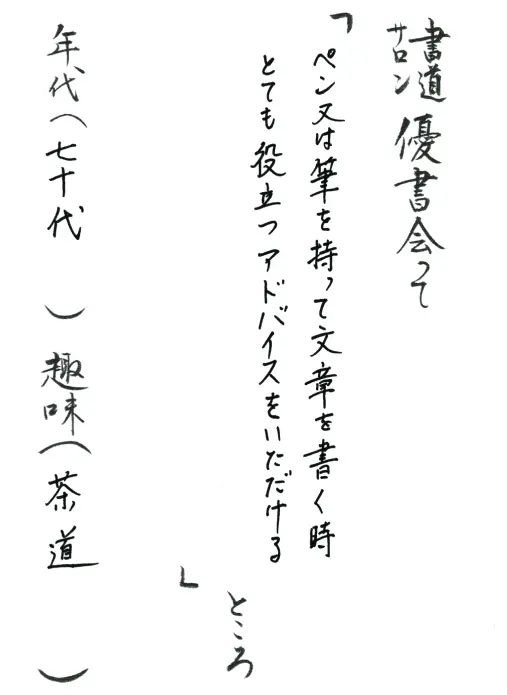 書道サロン 優書会って
「ペン又は筆を持って文章を書く時
とても役立つアドバイスをいただける
」ところ
年代（七十代　）趣味（茶道　）